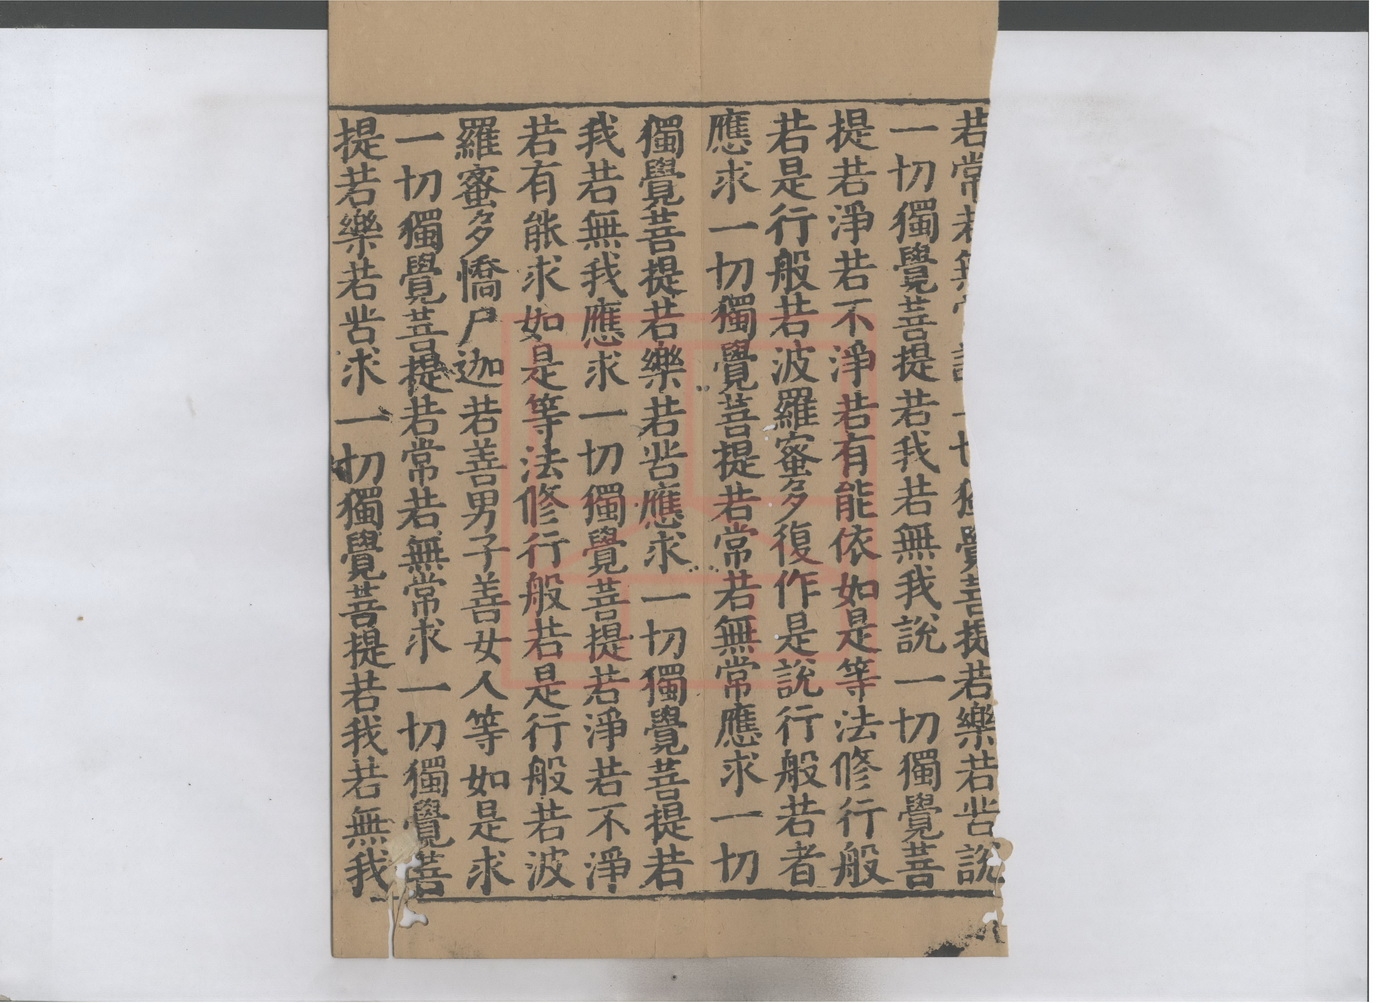 若常若無常說一切獨覺菩提若樂若苦說
一切獨覺菩提若我若無我說一切獨覺菩
提若淨若不淨若有能依如是等法修行般
若是行般若波羅蜜多復作是說行般若者
應求一切獨覺菩提若常若無常應求一切
獨覺菩提若樂若苦應求一切獨覺菩提若
我若無我應求一切獨覺菩提若淨若不淨
若有能求如是等法修行般若是行般若波
羅蜜多憍尸迦若善男子善女人等如是求
一切獨覺菩提若常若無常求一切獨覺菩
提若樂若苦求一切獨覺菩提若我若無我